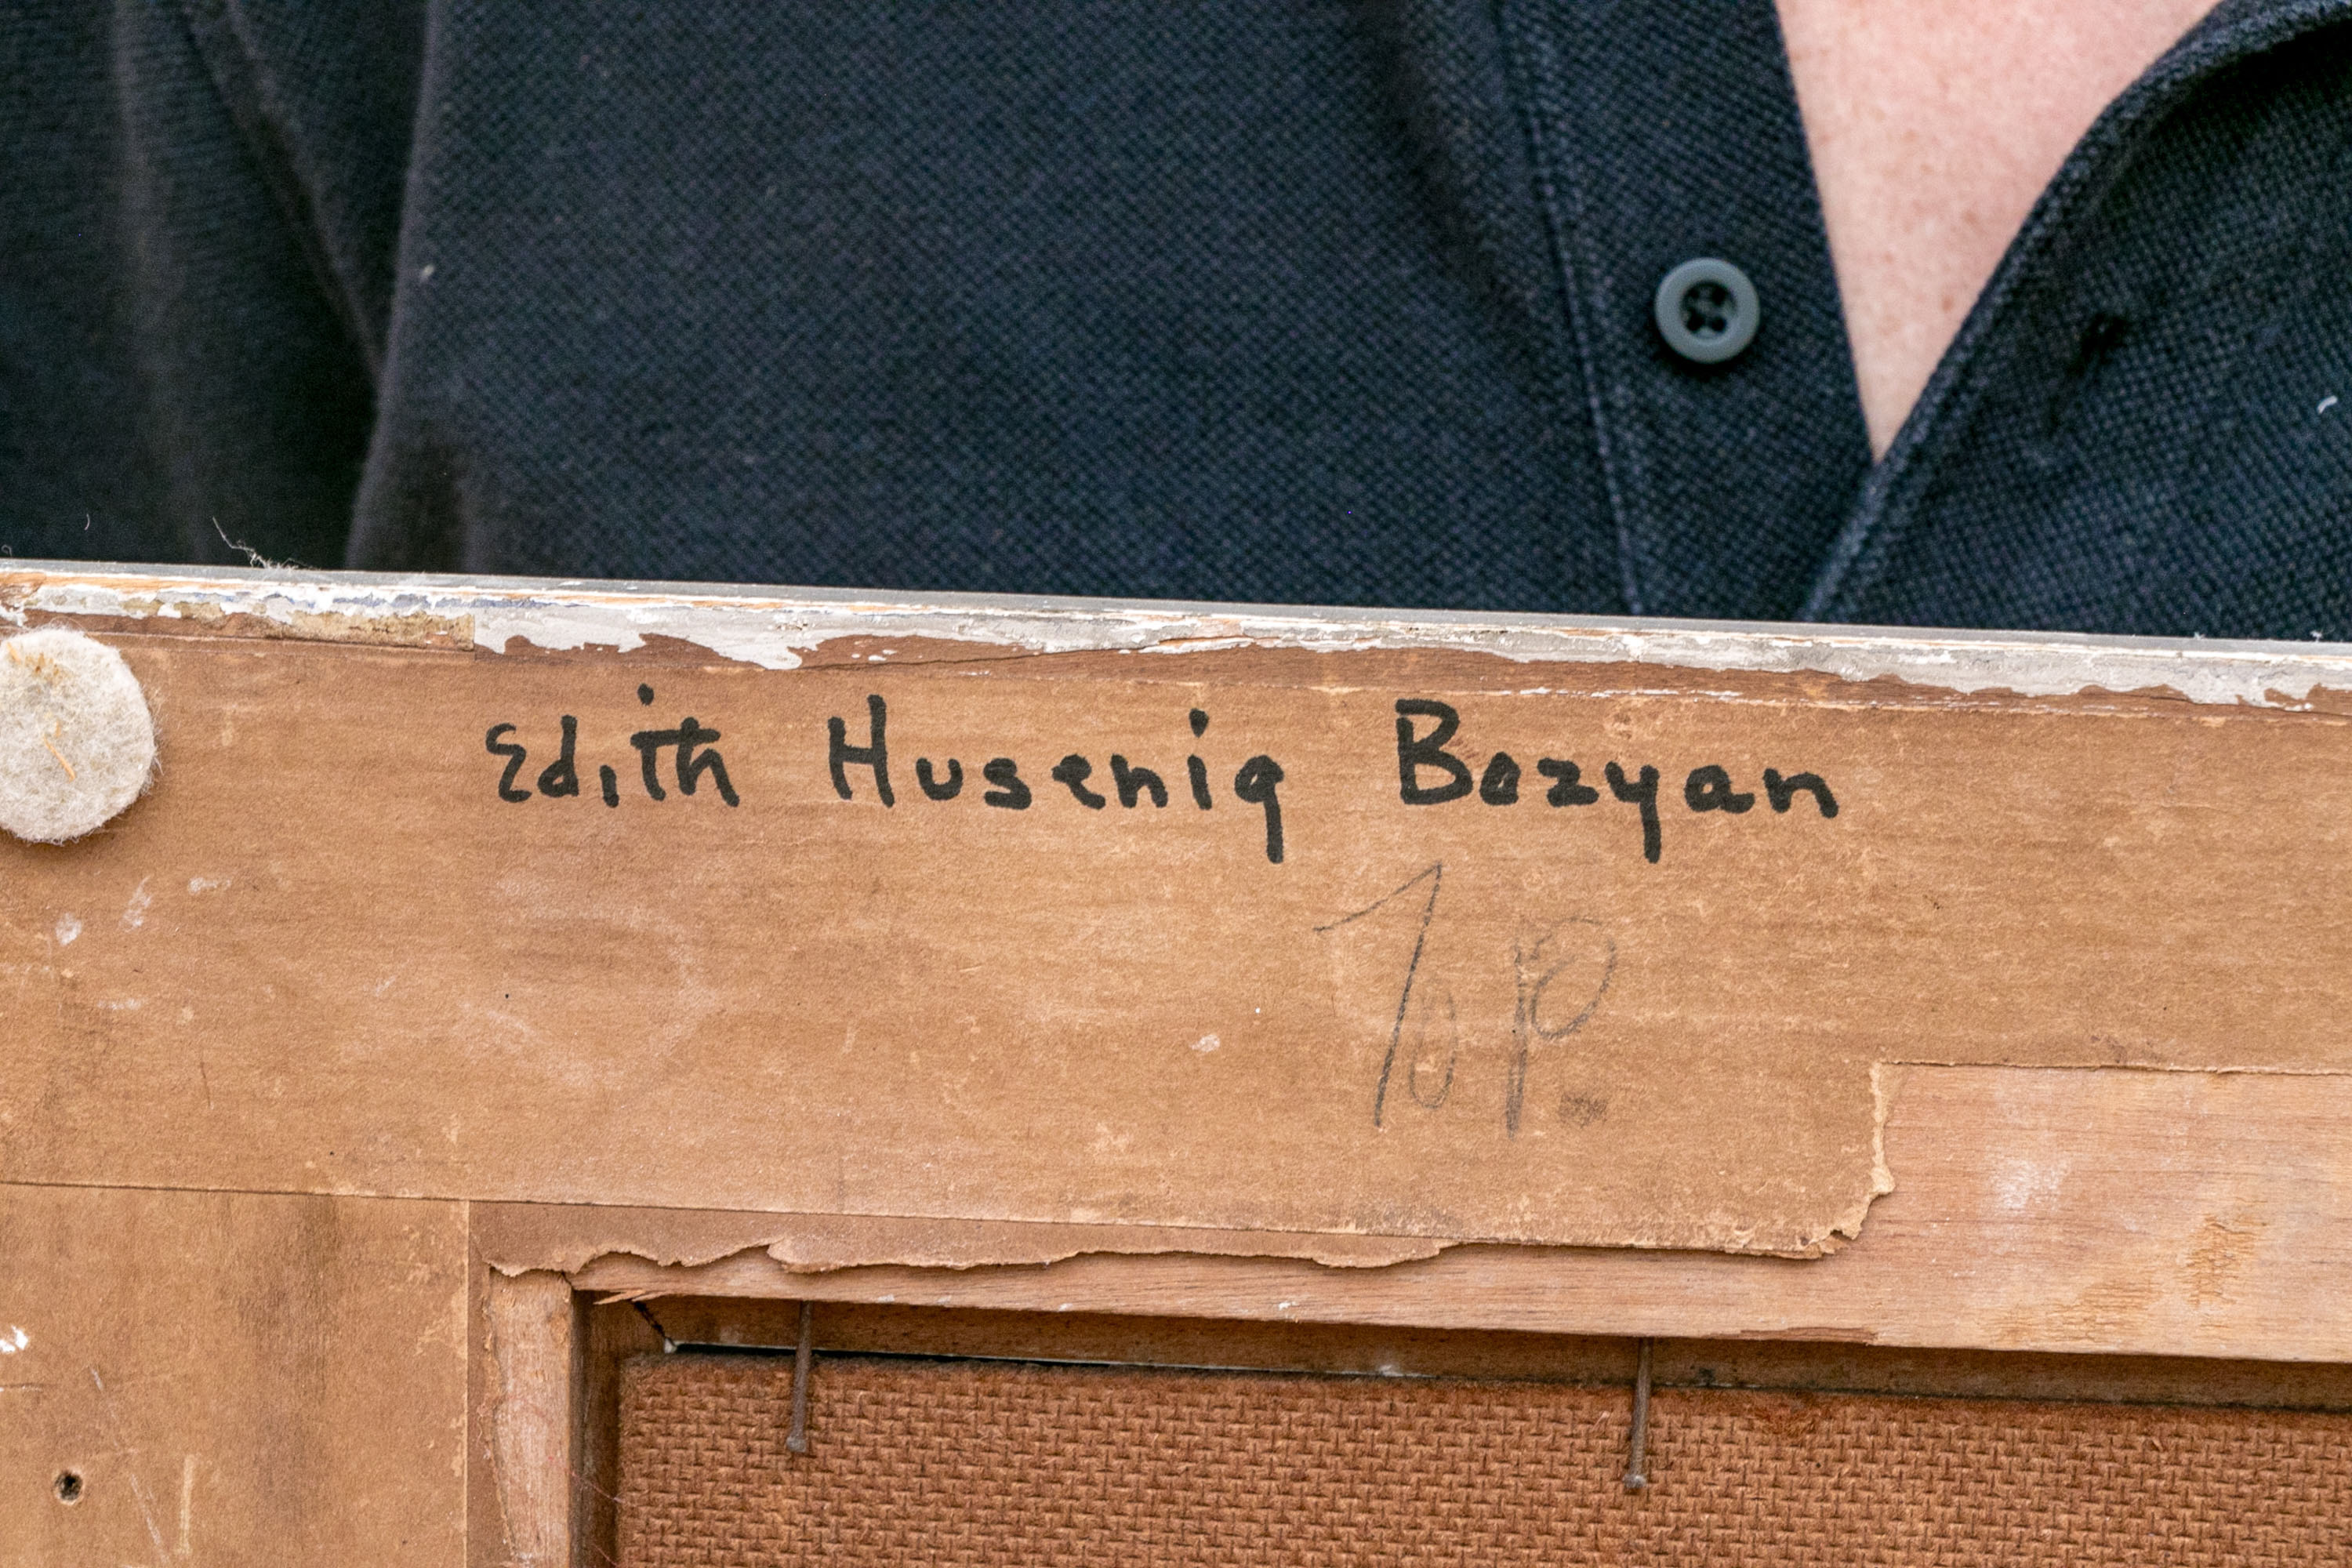 Edith Huseniq Bozyan
Top